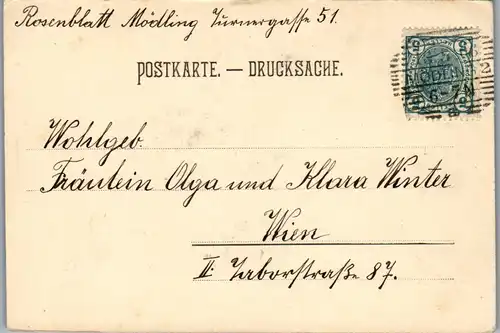 Rosenblatt Mödling Turnergasse 51.
POSTKARTE. — DRUCKSACHE.
Wohlgeb.
Fräulein Olga und Klara Winter
Wien
II. Taborstraße 87.